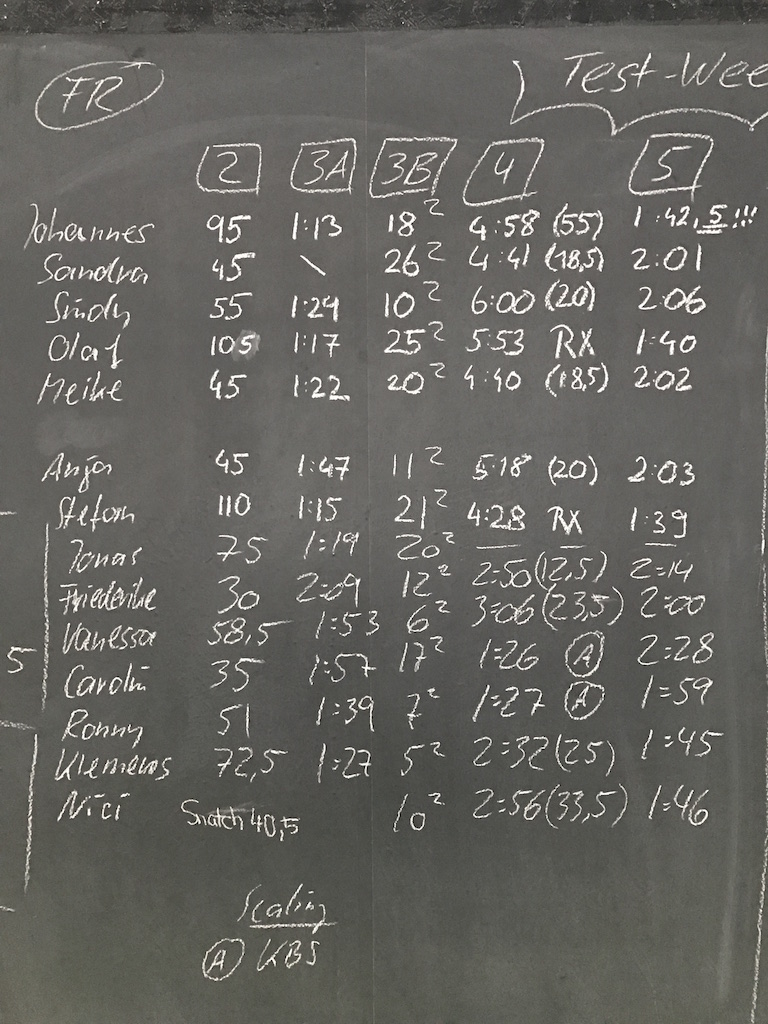 FR
Test-Wee
2 3A 3B 4 5
Johannes 95 1:13 18² 4:58 (55) 1:42,5!!!
Sandra 45 \ 26² 4:41 (18,5) 2:01
Sindy 55 1:24 10² 6:00 (20) 2:06
Olaf 105 1:17 25² 5:53 RX 1:40
Meike 45 1:22 20² 4:40 (18,5) 2:02
Anja 45 1:47 11² 5:18 (20) 2:03
Stefan 110 1:15 21² 4:28 RX 1:39
Jonas 75 1:19 20² 2:50 (12,5) 2:14
Friederike 30 2:09 12² 3:06 (23,5) 2:00
5 Vanessa 58,5 1:53 6² 1:26 A 2:28
Carolin 35 1:57 17² 1:27 A 1:59
Ronny 51 1:39 7² 2:32 (25) 1:45
Klemens 72,5 1:27 5² 2:56 (33,5) 1:46
Nici Snatch 40,5 10²
Scaling
A KBS